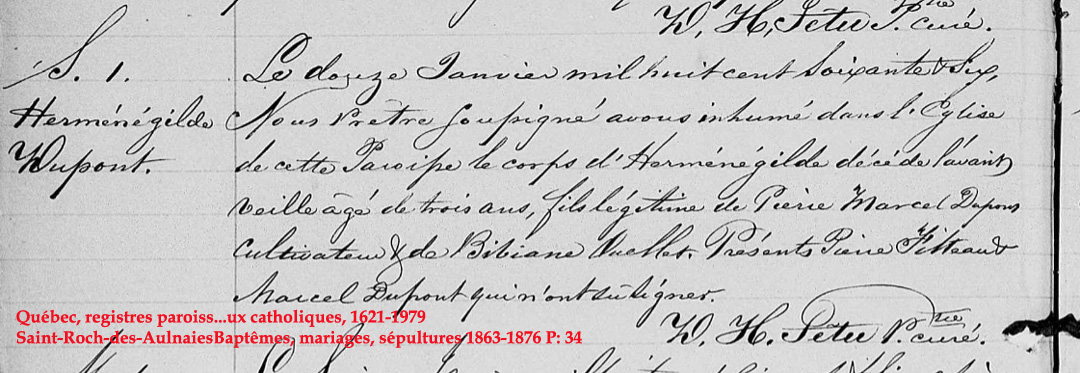 D. H. Têtu Ptre curé.
S. 1.
Herménégilde
Dupont.
Le douze Janvier mil huit cent Soixante & Six,
Nous Prêtre Soussigné avons inhumé dans l'Eglise
de cette Paroisse le corps d'Herménégilde décédé l'avant
veille âgé de trois ans, fils légitime de Pierre Marcel Dupont
Cultivateur & de Bibiane Ouellet. Présents Pierre &
Marcel Dupont qui n'ont su signer.
D. H. Têtu Ptre curé.
Québec, registres paroiss...ux catholiques, 1621-1979
Saint-Roch-des-AulnaiesBaptêmes, mariages, sépultures 1863-1876 P: 34